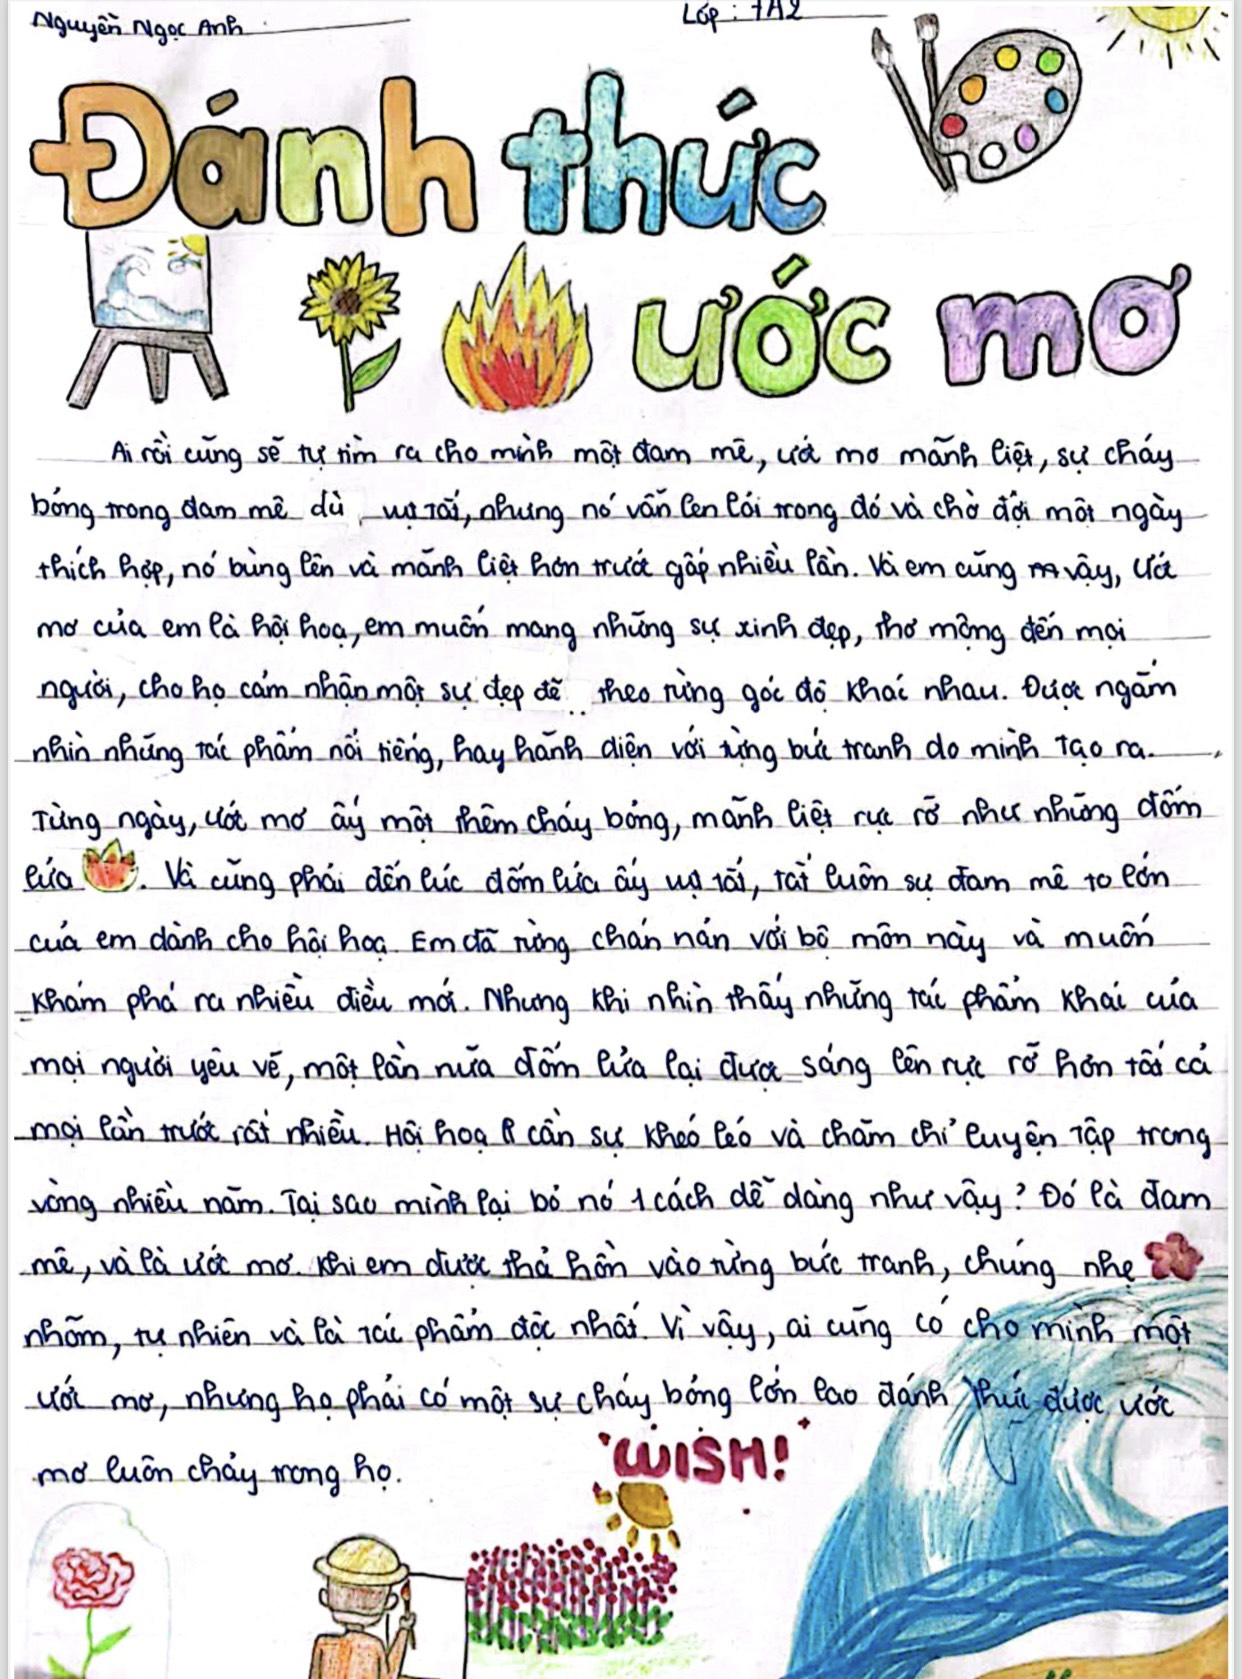 Nguyễn Ngọc Anh
Lớp : 7A2
Đánh thức
ước mơ
Ai rồi cũng sẽ tự tìm ra cho mình một đam mê, ước mơ mãnh liệt, sự cháy
bỏng trong đam mê dù vụt tắt, nhưng nó vẫn len lỏi trong đó và chờ đợi một ngày
thích hợp, nó bùng lên và mãnh liệt hơn trước gấp nhiều lần. Và em cũng vậy, ước
mơ của em là hội hoạ, em muốn mang những sự xinh đẹp, thơ mộng đến mọi
người, cho họ cảm nhận một sự đẹp đẽ theo từng góc độ khác nhau. Được ngắm
nhìn những tác phẩm nổi tiếng, hay hãnh diện với từng bức tranh do mình tạo ra.
Từng ngày, ước mơ ấy một thêm cháy bỏng, mãnh liệt rực rỡ như những đốm
lửa. Và cũng phải đến lúc đốm lửa ấy vụt tắt, tắt luôn sự đam mê to lớn
của em dành cho hội hoạ. Em đã từng chán nản với bộ môn này và muốn
khám phá ra nhiều điều mới. Nhưng khi nhìn thấy những tác phẩm khác của
mọi người yêu vẽ, một lần nữa đốm lửa lại được sáng lên rực rỡ hơn tất cả
mọi lần trước rất nhiều. Hội hoạ cần sự khéo léo và chăm chỉ luyện tập trong
vòng nhiều năm. Tại sao mình lại bỏ nó 1 cách dễ dàng như vậy? Đó là đam
mê, và là ước mơ. Khi em được thả hồn vào từng bức tranh, chúng nhẹ
nhõm, tự nhiên và là tác phẩm độc nhất. Vì vậy, ai cũng có cho mình một
ước mơ, nhưng họ phải có một sự cháy bỏng lớn lao đánh thức được ước
mơ luôn chảy trong họ.
WISH!